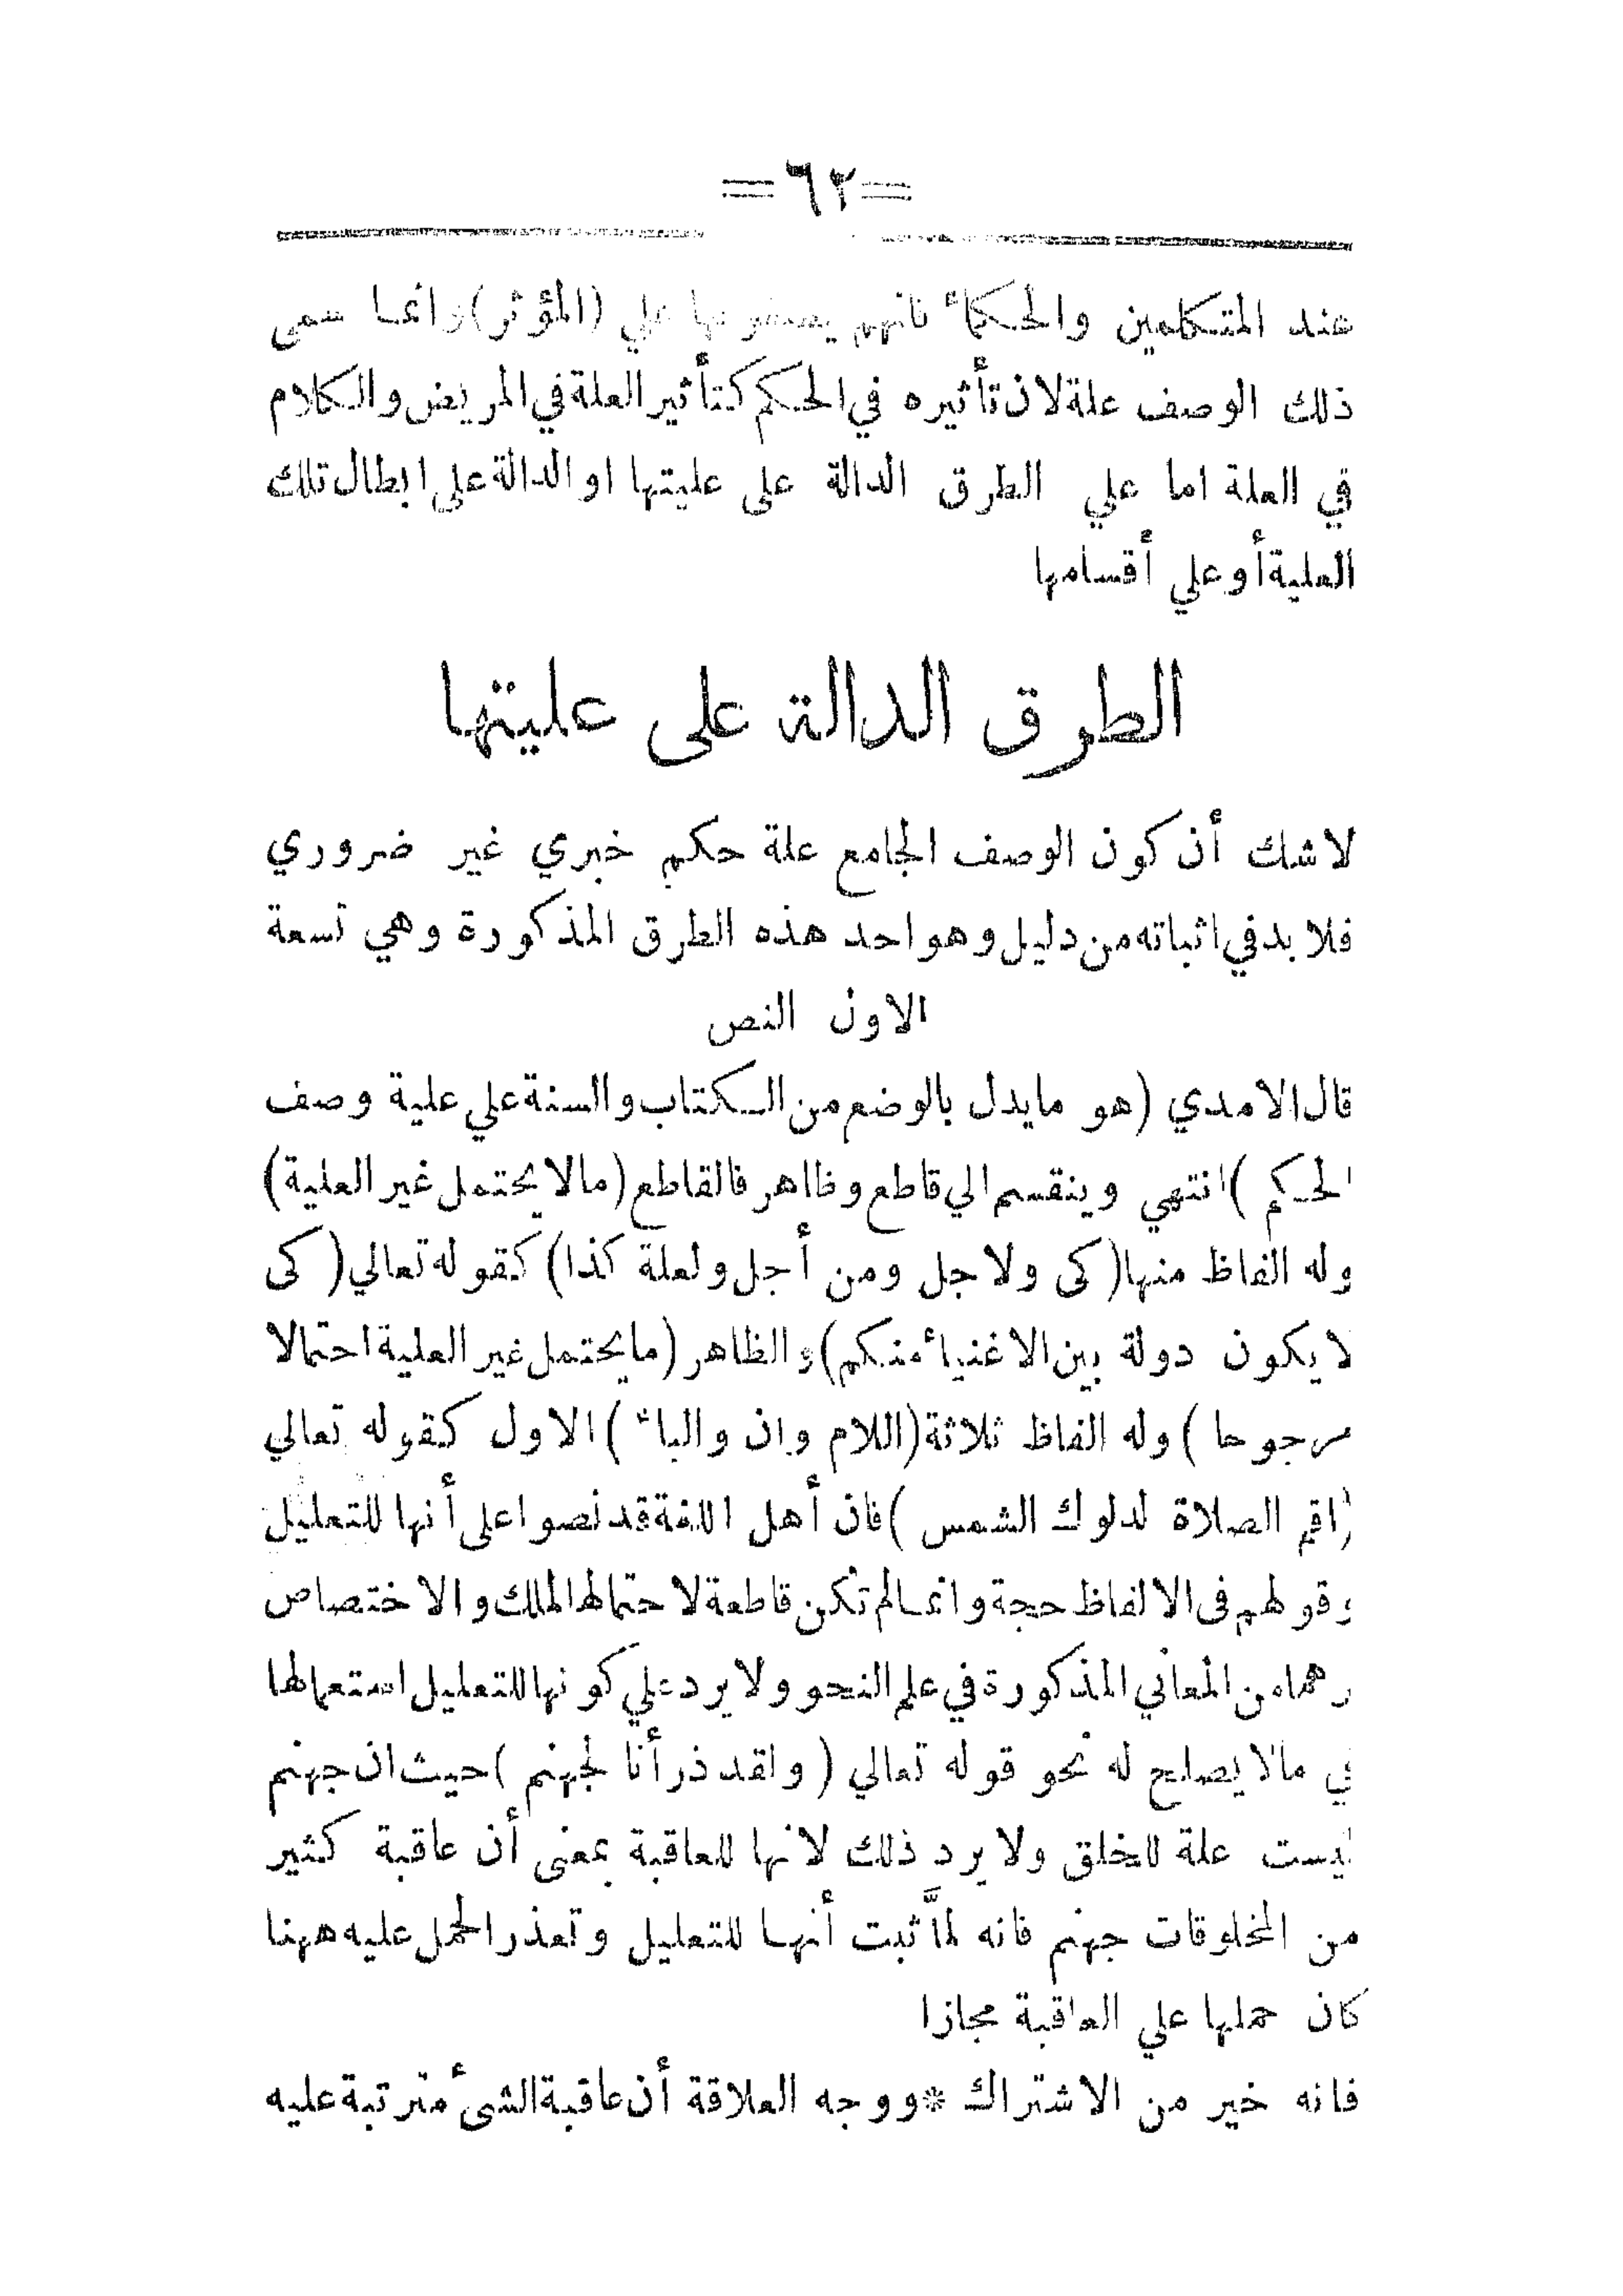 =٦٢=
عند المتكلمين والحكماء فانهم علي (المؤثر) وانما سمى
ذلك الوصف علة لان تأثيره في الحكم كتأثير العلة في المريض والكلام
في العلة اما علي الطرق الدالة على عليتها او الدالة على ابطال تلك
العلية أو علي أقسامها
الطرق الدالة على عليتها
لاشك أن كون الوصف الجامع علة حكم خبري غير ضروري
فلا بد في اثباته من دليل وهو احد هذه الطرق المذكورة وهي تسعة
الاول النص
قال الامدي (هو مايدل بالوضع من الكتاب والسنة علي علية وصف
الحكم) انتهي وينقسم الي قاطع وظاهر فالقاطع (مالا يحتمل غير العلية)
وله الفاظ منها (كى ولاجل ومن أجل ولعلة كذا) كقوله تعالي (كى
لا يكون دولة بين الاغنياء منكم) والظاهر (مايحتمل غير العلية احتمالا
مرجوحا) وله الفاظ ثلاثة (اللام وان والباء) الاول كقوله تعالي
(اقم الصلاة لدلوك الشمس) فان أهل اللغة قد نصوا على أنها للتعليل
وقولهم فى الالفاظ حجة وانما لم تكن قاطعة لاحتمالها الملك والاختصاص
وهما من المعاني المذكورة في علم النحو ولا يرد علي كونها للتعليل استعمالها
في مالا يصلح له نحو قوله تعالي (ولقد ذرأنا لجهنم) حيث ان جهنم
ليست علة للخلق ولا يرد ذلك لانها للعاقبة بمعنى أن عاقبة كثير
من المخلوقات جهنم فانه لمَّا ثبت أنها للتعليل وتعذر الحمل عليه ههنا
كان حملها علي العاقبة مجازا
فانه خير من الاشتراك * ووجه العلاقة أن عاقبة الشىء مترتبة عليه